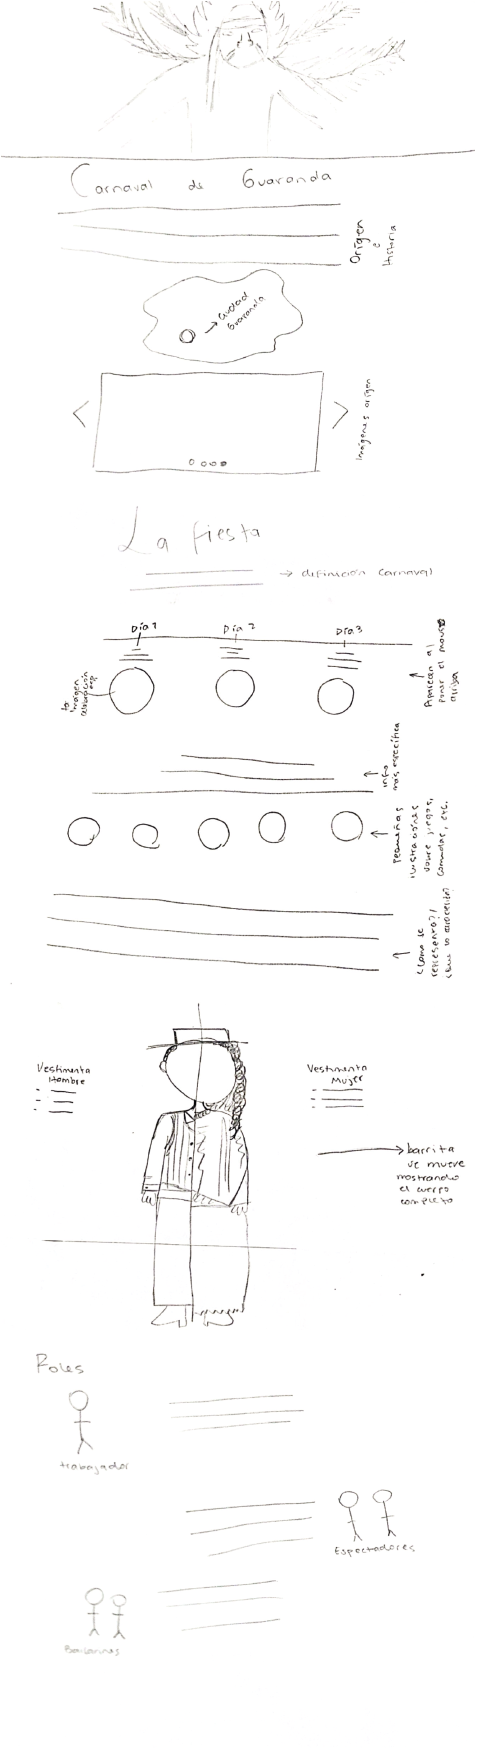 Carnaval de Guaranda
Origen
e
Historia
→ ciudad
Guaranda
Imágenes origen
La fiesta
→ definición carnaval
Día 1
Día 2
Día 3
Aparecen al
poner el mouse
arriba
imagen
celebración
info
más específica
pequeñas
ilustraciones
sobre juegos,
comidas, etc.
¿Como se
representa?/
Vestimenta
Hombre
Vestimenta
Mujer
barrita
se mueve
mostrando
el cuerpo
completo
Roles
trabajador
Espectadores
Bailarines